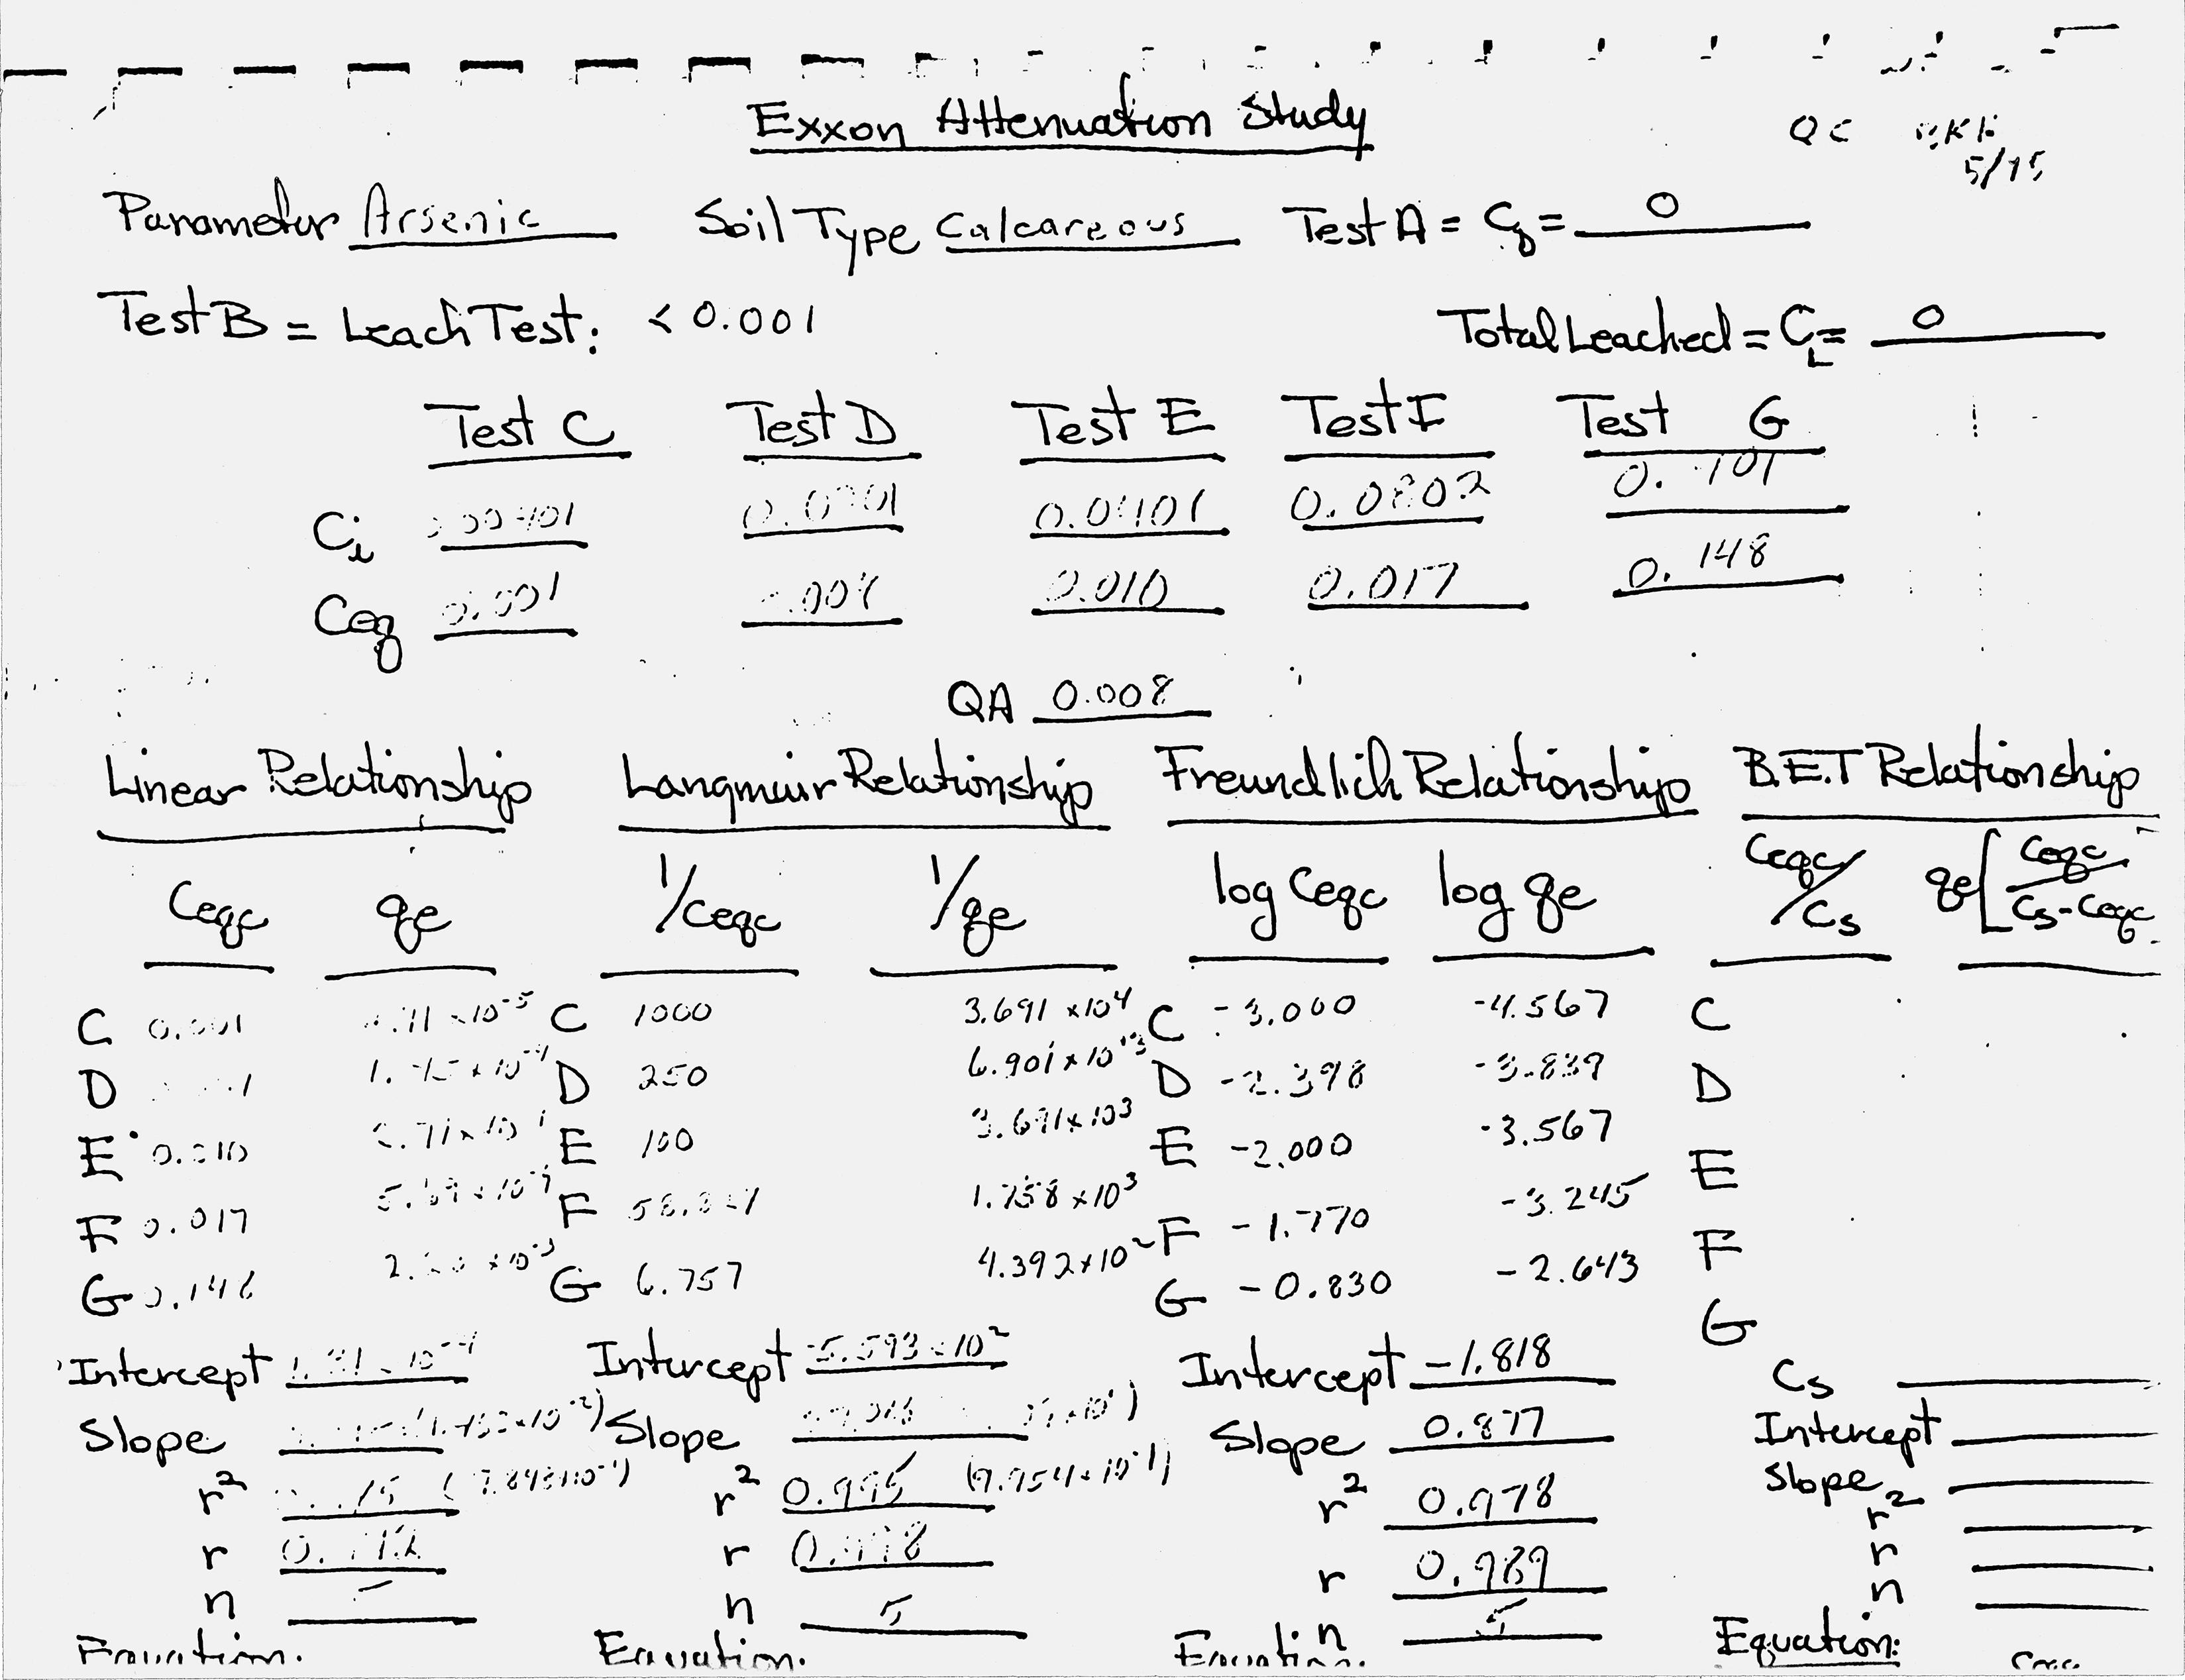 Exxon Attenuation Study
QC
5/15
Parameter Arsenic Soil Type Calcareous Test A = C₀ = 0
Test B = Leach Test: < 0.001 Total Leached = C_L = 0
Test C Test D Test E Test F Test G
Ci 0.0401 0.0802
Ceq 0.001 0.010 0.017 0.148
QA 0.008
Linear Relationship Langmuir Relationship Freundlich Relationship B.E.T Relationship
Ceqc qe 1/Ceqc 1/qe log Ceqc log qe Ceqc/Cs qe[Ceqc/Cs-Ceqc
C 0.001 C 1000 3.691 x10⁴ C -3.000 -4.567 C
D D 250 6.901 x 10⁺³ D -2.398 -3.839 D
E 0.010 E 100 3.691x10³ E -2.000 -3.567 E
F 0.017 F 1.758 x10³ F -1.770 -3.245 F
G 0.148 G 6.757 4.392x10² G -0.830 -2.643 G
Intercept Intercept -5.593 x 10² Intercept -1.818 Cs
Slope Slope Slope 0.877 Intercept
r² r² 0.995 (9.954x10⁻¹) r² 0.978 Slope
r r 0.998 r 0.989 r²
n n 5 n 5 r
n
Equation: Equation: Equation: Equation: